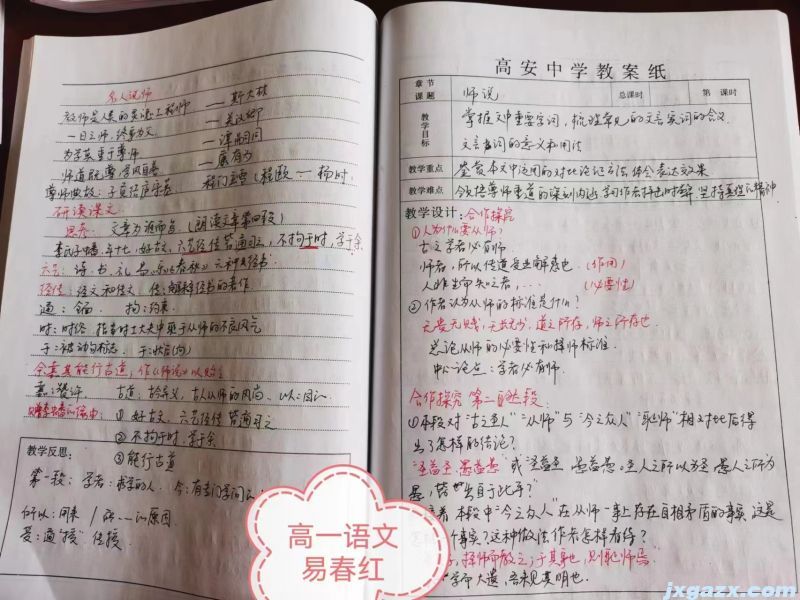 名人说师
教师是人类的灵魂工程师 —— 斯大林
一日为师，终身为父 —— 关汉卿
为学莫重于尊师 —— 谭嗣同
师道既尊，学风自善 —— 康有为
尊师典故：子贡结庐守墓 程门立雪（程颐 — 杨时）
研读课文
思考：文章为谁而写（朗读文章第四段）
李氏子蟠，年十七，好古文，六艺经传皆通习之，不拘于时，学于余
六艺：诗、书、礼、易、乐、《春秋》六种经书
经传：经文和传文，传：解释经书的著作
通：通 拘：约束
时：时俗，指当时士大夫中耻于从师的不良风气
于：被动句标志， 于：状后（向）
余嘉其能行古道，作《师说》以贻之
嘉：赞许， 古道：古人从师的风尚，以：因
赠李蟠的缘由：① 好古文，六艺经传皆通习之
② 不拘于时，学于余
③ 能行古道
教学反思：
第一段：学者：求学的人，今：有专门学问的
所以：用来 / 的原因
受：通“授”，传授
高一语文
易春红
高安中学教案纸
章节
课题
师说
总课时
第 课时
教学目标
掌握文中重要字词，梳理常见的文言实词的含义
文言虚词的意义和用法
教学重点
鉴赏本文中运用的对比论证方法，体会表达效果
教学难点
教学设计：合作探究
① 人为什么要从师？
古之学者必有师
师者，所以传道受业解惑也（作用）
人非生而知之者，…（必要性）
② 作者认为从师的标准是什么？
无贵无贱，无长无少，道之所存，师之所存也
总论从师的必要性和择师标准
中心论点：学者必有师。
合作探究 第二自然段
① 本段对“古之圣人”“从师”与“今之众人”“耻师”相对比后得
出了怎样的结论？
“圣益圣，愚益愚” 或 “圣益圣，愚益愚。圣人之所以为圣，愚人之所以为
愚，皆出于此乎？”
着 本段中“今之众人”在从师一事上存在自相矛盾的事实，这是
个事实？这种做法，作者怎样看待？
择师而教之；于其身也，则耻师焉
学而大遗，吾未见其明也。
jxgazx.com